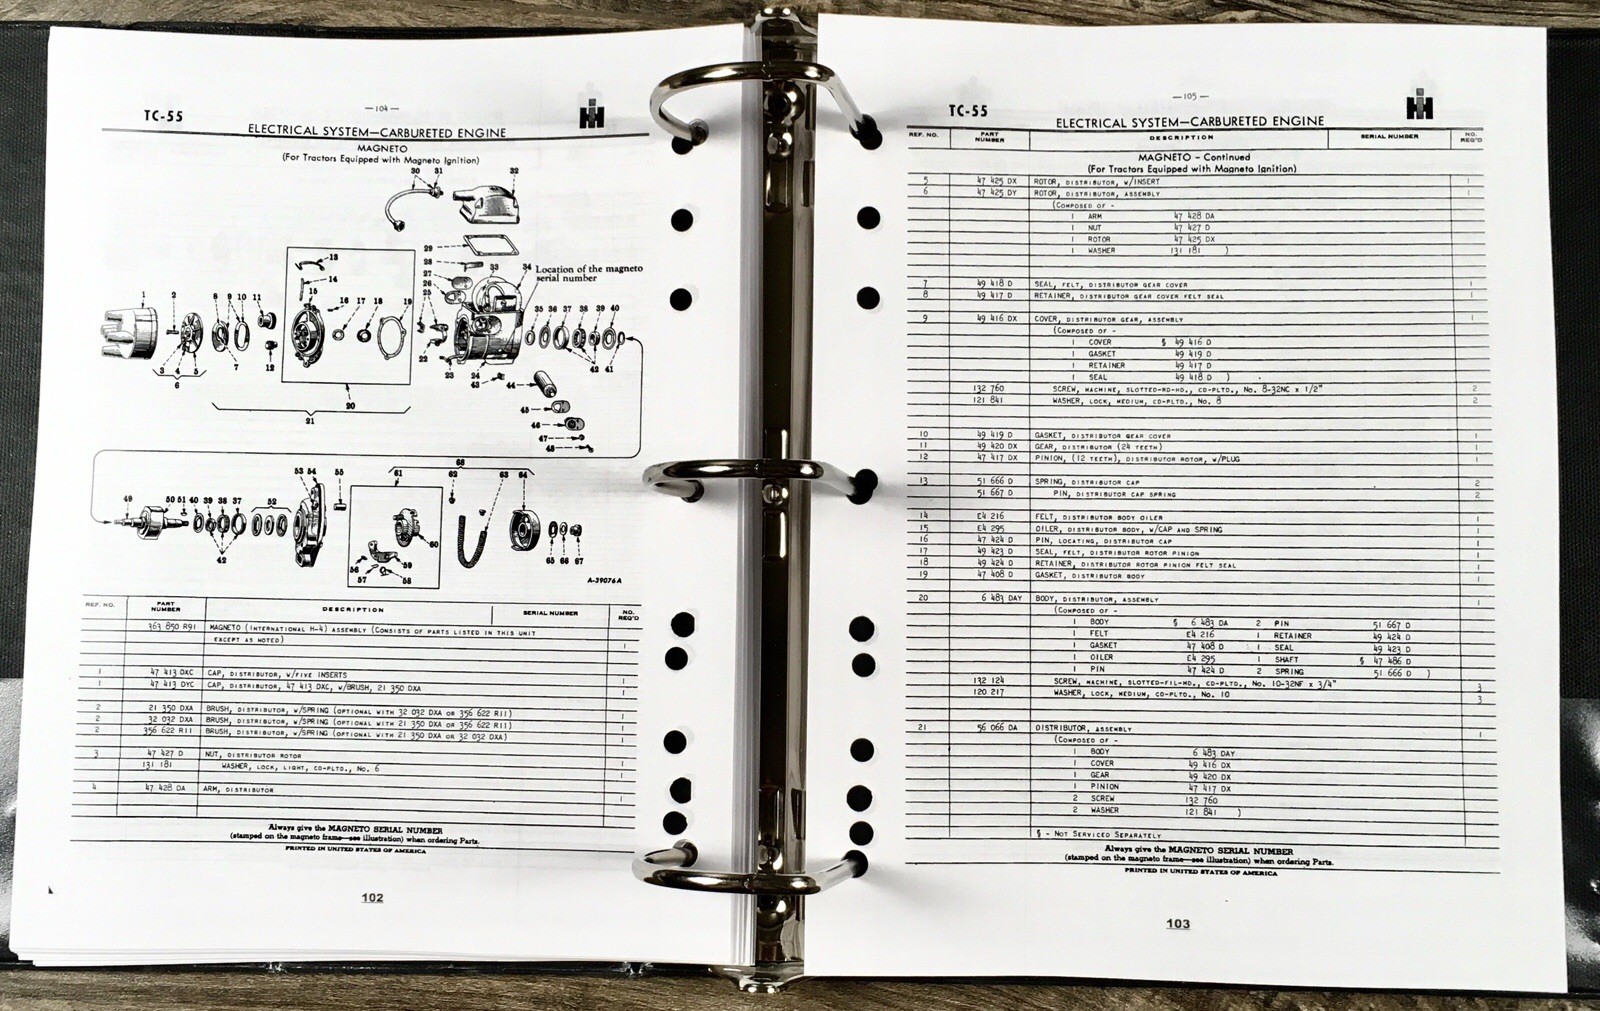 —104—
TC-55
IH
ELECTRICAL SYSTEM—CARBURETED ENGINE
MAGNETO
(For Tractors Equipped with Magneto Ignition)
30 31 32
29
28
27
26
25
33 34 Location of the magneto
serial number
13
14
15 16 17 18 19
1 2 8 9 10 11
35 36 37 38 39 40
3 4 5 7 12
6
22
23 24
42 41
43 44
20
21
45
46
47
48
68
53 54 55 61 62 63 64
49 50 51 40 39 38 37 52
42
60
56 59
57 58
65 66 67
A-39076A
REF. NO. PART NUMBER DESCRIPTION SERIAL NUMBER NO. REQ'D
363 850 R91 MAGNETO (INTERNATIONAL H-4) ASSEMBLY (CONSISTS OF PARTS LISTED IN THIS UNIT
EXCEPT AS NOTED) 1
1 47 413 DXC CAP, DISTRIBUTOR, W/FIVE INSERTS 1
1 47 413 DYC CAP, DISTRIBUTOR, 47 413 DXC, W/BRUSH, 21 350 DXA 1
2 21 350 DXA BRUSH, DISTRIBUTOR, W/SPRING (OPTIONAL WITH 32 032 DXA OR 356 622 R11) 1
2 32 032 DXA BRUSH, DISTRIBUTOR, W/SPRING (OPTIONAL WITH 21 350 DXA OR 356 622 R11) 1
2 356 622 R11 BRUSH, DISTRIBUTOR, W/SPRING (OPTIONAL WITH 21 350 DXA OR 32 032 DXA) 1
3 47 427 D NUT, DISTRIBUTOR ROTOR 1
131 181 WASHER, LOCK, LIGHT, CD-PLTD., No. 6 1
4 47 428 DA ARM, DISTRIBUTOR 1
Always give the MAGNETO SERIAL NUMBER
(stamped on the magneto frame—see illustration) when ordering Parts.
PRINTED IN UNITED STATES OF AMERICA
102
—105—
TC-55
IH
ELECTRICAL SYSTEM—CARBURETED ENGINE
REF. NO. PART NUMBER DESCRIPTION SERIAL NUMBER NO. REQ'D
MAGNETO - Continued
(For Tractors Equipped with Magneto Ignition)
5 47 425 DX ROTOR, DISTRIBUTOR, W/INSERT 1
6 47 425 DY ROTOR, DISTRIBUTOR, ASSEMBLY 1
(COMPOSED OF -
1 ARM 47 428 DA
1 NUT 47 427 D
1 ROTOR 47 425 DX
1 WASHER 131 181 )
7 49 418 D SEAL, FELT, DISTRIBUTOR GEAR COVER 1
8 49 417 D RETAINER, DISTRIBUTOR GEAR COVER FELT SEAL 1
9 49 416 DX COVER, DISTRIBUTOR GEAR, ASSEMBLY 1
(COMPOSED OF -
1 COVER § 49 416 D
1 GASKET 49 419 D
1 RETAINER 49 417 D
1 SEAL 49 418 D )
132 760 SCREW, MACHINE, SLOTTED-RD-HD., CD-PLTD., No. 8-32NC x 1/2" 2
121 841 WASHER, LOCK, MEDIUM, CD-PLTD., No. 8 2
10 49 419 D GASKET, DISTRIBUTOR GEAR COVER 1
11 49 420 DX GEAR, DISTRIBUTOR (24 TEETH) 1
12 47 417 DX PINION, (12 TEETH), DISTRIBUTOR ROTOR, W/PLUG 1
13 51 666 D SPRING, DISTRIBUTOR CAP 2
51 667 D PIN, DISTRIBUTOR CAP SPRING 2
14 E4 216 FELT, DISTRIBUTOR BODY OILER 1
15 E4 295 OILER, DISTRIBUTOR BODY, W/CAP AND SPRING 1
16 47 424 D PIN, LOCATING, DISTRIBUTOR CAP 1
17 49 423 D SEAL, FELT, DISTRIBUTOR ROTOR PINION 1
18 49 424 D RETAINER, DISTRIBUTOR ROTOR PINION FELT SEAL 1
19 47 408 D GASKET, DISTRIBUTOR BODY 1
20 6 483 DAY BODY, DISTRIBUTOR, ASSEMBLY 1
(COMPOSED OF -
1 BODY § 6 483 DA 2 PIN 51 667 D
1 FELT E4 216 1 RETAINER 49 424 D
1 GASKET 47 408 D 1 SEAL 49 423 D
1 OILER E4 295 1 SHAFT § 47 486 D
1 PIN 47 424 D 2 SPRING 51 666 D )
132 124 SCREW, MACHINE, SLOTTED-FIL-HD., CD-PLTD., No. 10-32NF x 3/4" 3
120 217 WASHER, LOCK, MEDIUM, CD-PLTD., No. 10 3
21 56 066 DA DISTRIBUTOR, ASSEMBLY 1
(COMPOSED OF -
1 BODY 6 483 DAY
1 COVER 49 416 DX
1 GEAR 49 420 DX
1 PINION 47 417 DX
2 SCREW 132 760
2 WASHER 121 841 )
§ - NOT SERVICED SEPARATELY
Always give the MAGNETO SERIAL NUMBER
(stamped on the magneto frame—see illustration) when ordering Parts.
PRINTED IN UNITED STATES OF AMERICA
103